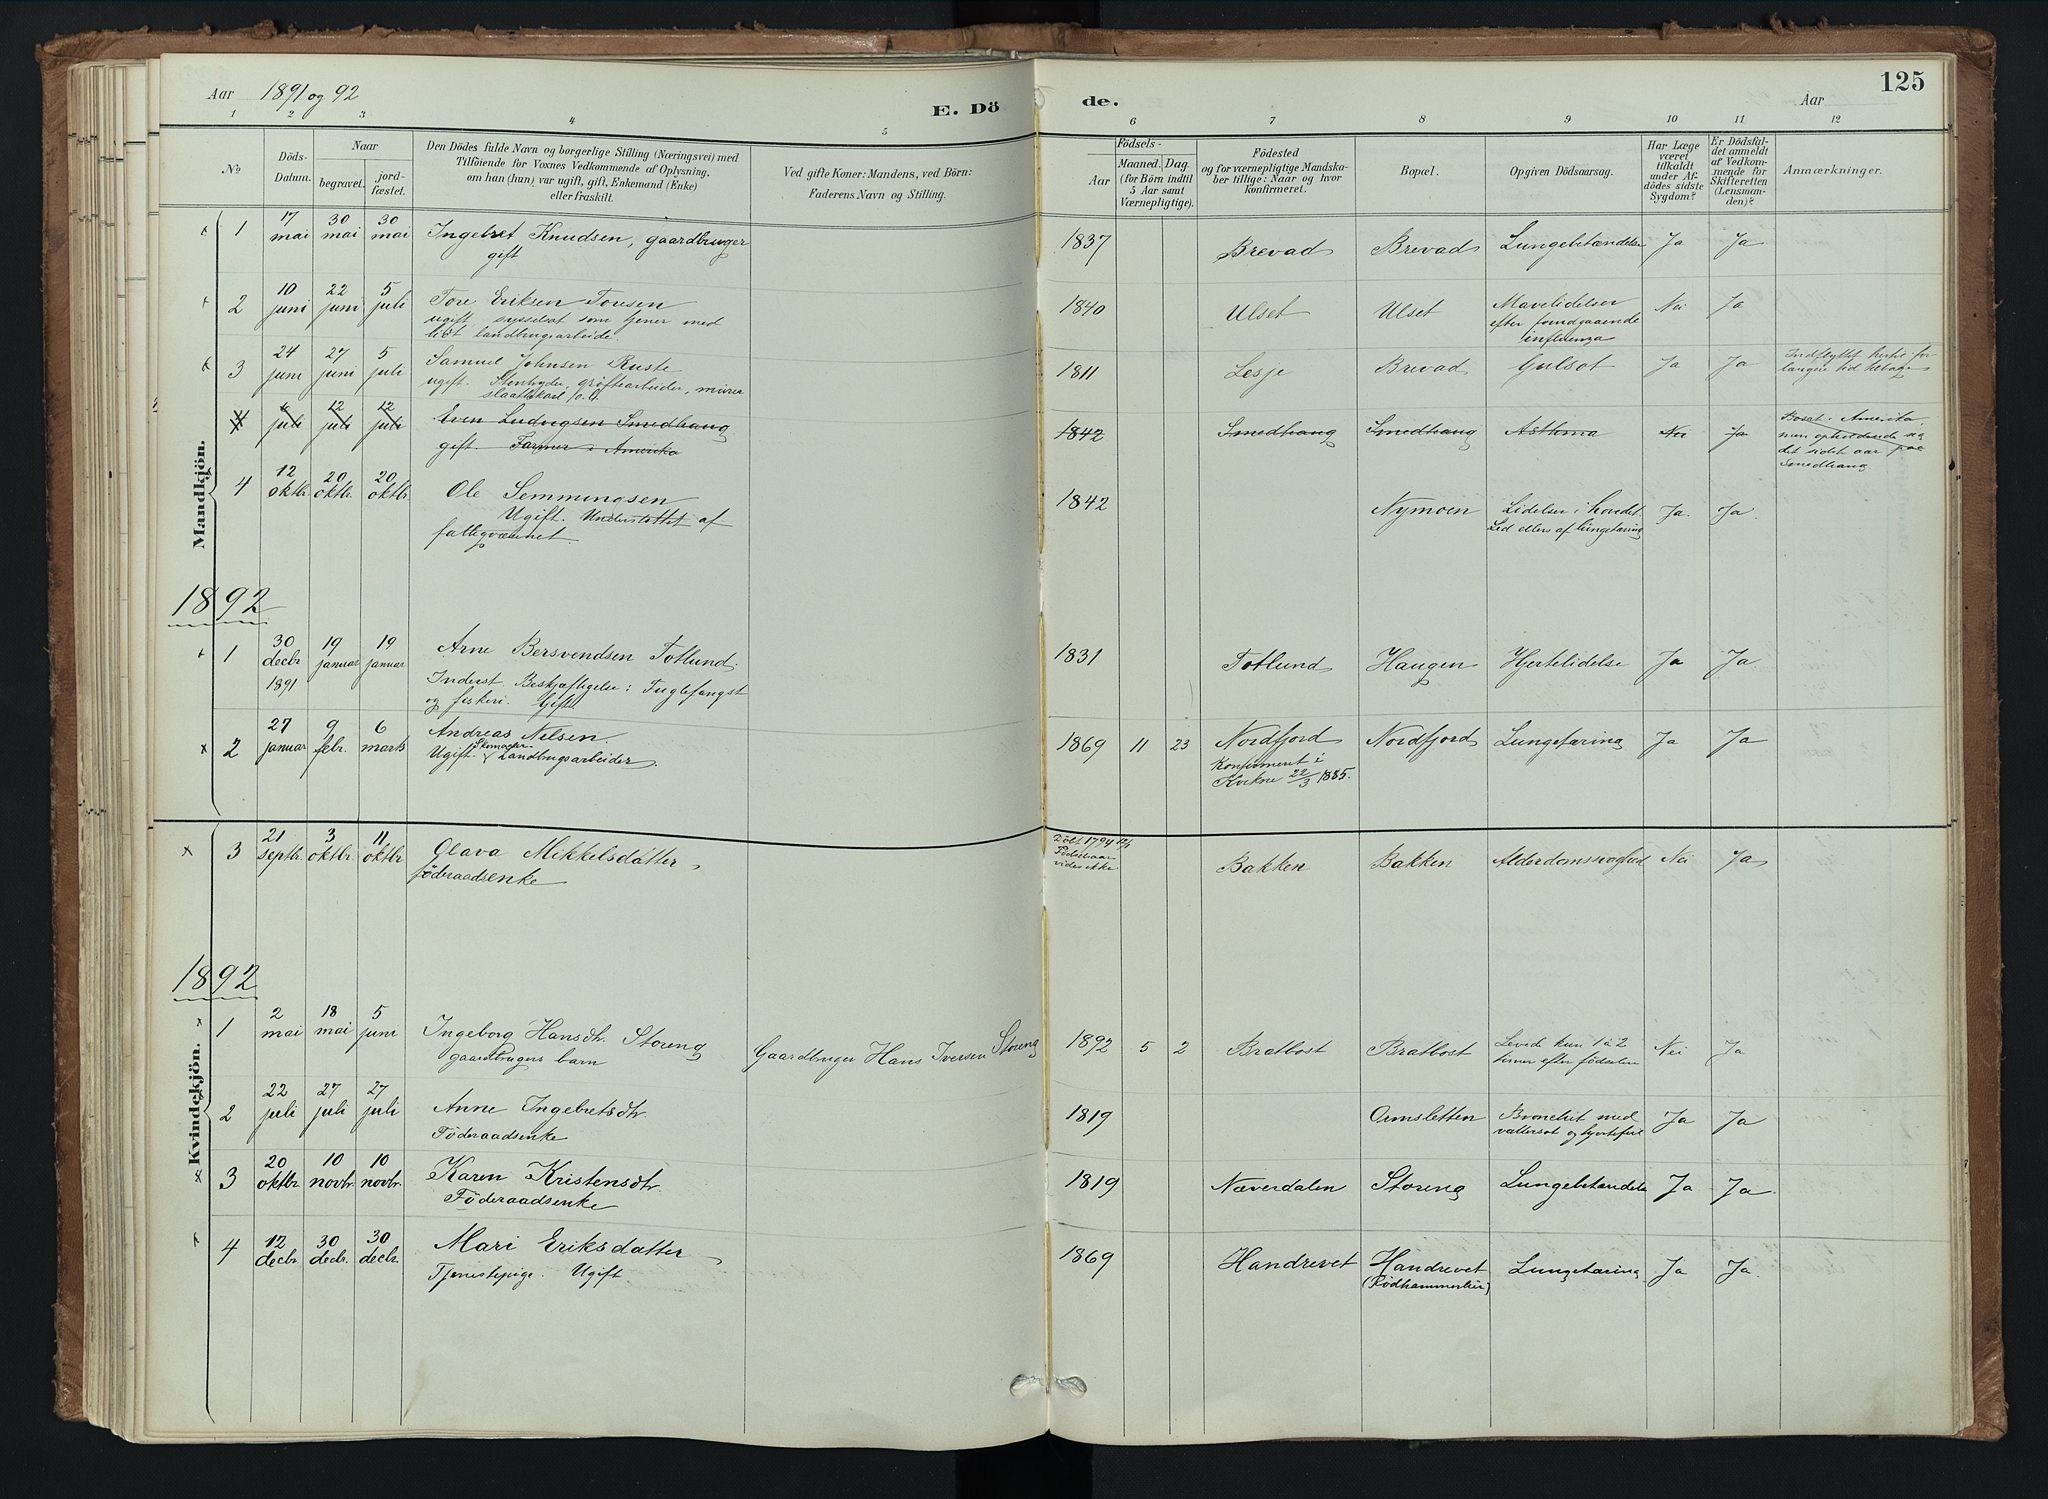 Aar 1891 og 92
E. Dö
de.
Aar
125
1 2 3 4 5 6 7 8 9 10 11 12
No.
Döds-Datum.
Naar
begravet.
jordfæstet.
Den Dödes fulde Navn og borgerlige Stilling (Næringsvei) med
Tilföiende for Voxnes Vedkommende af Oplysning,
om han (hun) var ugift, gift, Enkemand (Enke)
eller fraskilt.
Ved gifte Koner: Mandens, ved Börn:
Faderens Navn og Stilling.
Födsels-
Aar
Maaned. Dag.
(for Börn indtil
5 Aar samt
Værnepligtige).
Födested
og for værnepligtige Mandska-
ber tillige: Naar og hvor
konfirmeret.
Bopæl.
Opgiven Dödsaarsag.
Har Læge
været
tilkaldt
under Af-
dödes sidste
Sygdom?
Er Dödsfal-
det anmeldt
af Vedkom-
mende for
Skifteretten
(Lensman-
den)?
Anmærkninger.
Mandkjön.
1 17 mai 30 mai 30 mai Ingebret Knudsen, gaardbruger 1837 Brevad Brevad Lungebetændelse Ja Ja
gift
2 10 juni 22 juni 5 juli Tore Eriksen Toresen 1840 Ulset Ulset Mavelidelser Nei Ja
ugift sysselsat som tjener med efter foregaaende
lidt landbrugsarbeide. influenza
3 24 juni 27 juni 5 juli Samuel Johnsen Ruste 1811 Lesje Brevad Gulsot Ja Ja Indflyttet hertil for
ugift. Stenbryder, grøftearbeider, murer længere tid tilbage
slaattekarl o. a.
4 6 juli 12 juli 12 juli Even Ludvigsen Smedhaug 1842 Smedhaug Smedhaug Asthma Nei Ja Bosat i Amerika,
gift. Farmer i Amerika men opholdende sig
det sidst aar paa
Smedhaug
4 12 oktbr. 20 oktbr. 20 oktbr. Ole Semmingsen 1842 Nymoen Lidelser i hovedet. Ja. Ja.
Ugift. Understøttet af Led ellers af lungetæring
fattigvæsenet.
1892
1 30 decbr 1891 19 januar 19 januar Arne Bersvendsen Totlund. 1831 Totlund Haugen Hjertelidelse Ja Ja
Inderst. Beskjæftigelse: Fuglefangst
og fiskeri. Gift
2 27 januar 9 febr. 6 marts Andreas Nilsen. 1869 11 23 Nordfjord Nordfjord Lungetæring Ja Ja
Ugift. Skomager. Landbrugsarbeider. Konfirmeret i
Kvikne 22/3 1885.
Kvindekjön.
3 21 septbr. 3 oktbr. 11 oktbr Olava Mikkelsdatter, Døbt 1794 Bakken Bakken Alderdomssvaghed Nei Ja
føderaadsenke Fødselsaar
vides ikke
1892
1 2 mai 18 mai 5 juni Ingeborg Hansdtr. Storeng Gaardbruger Hans Iversen Storeng 1892 5 2 Bratbost Bratbost Levede kun 1 à 2 Nei Ja
gaardbrugers barn timer efter fødselen
2 22 juli 27 juli 27 juli Anne Ingebretsdtr. 1819 Ormsletten Bronchit med Ja Ja
Føderaadsenke vattersot og hjertefeil
3 20 oktbr 10 novbr. 10 novbr. Karen Kristensdtr. 1819 Næverdalen Storeng Lungebetændelse Ja Ja.
Føderaadsenke
4 12 decbr 30 decbr. 30 decbr. Mari Eriksdatter 1869 Handrevet Handrevet Lungetæring Ja Ja.
Tjenestepige. Ugift.